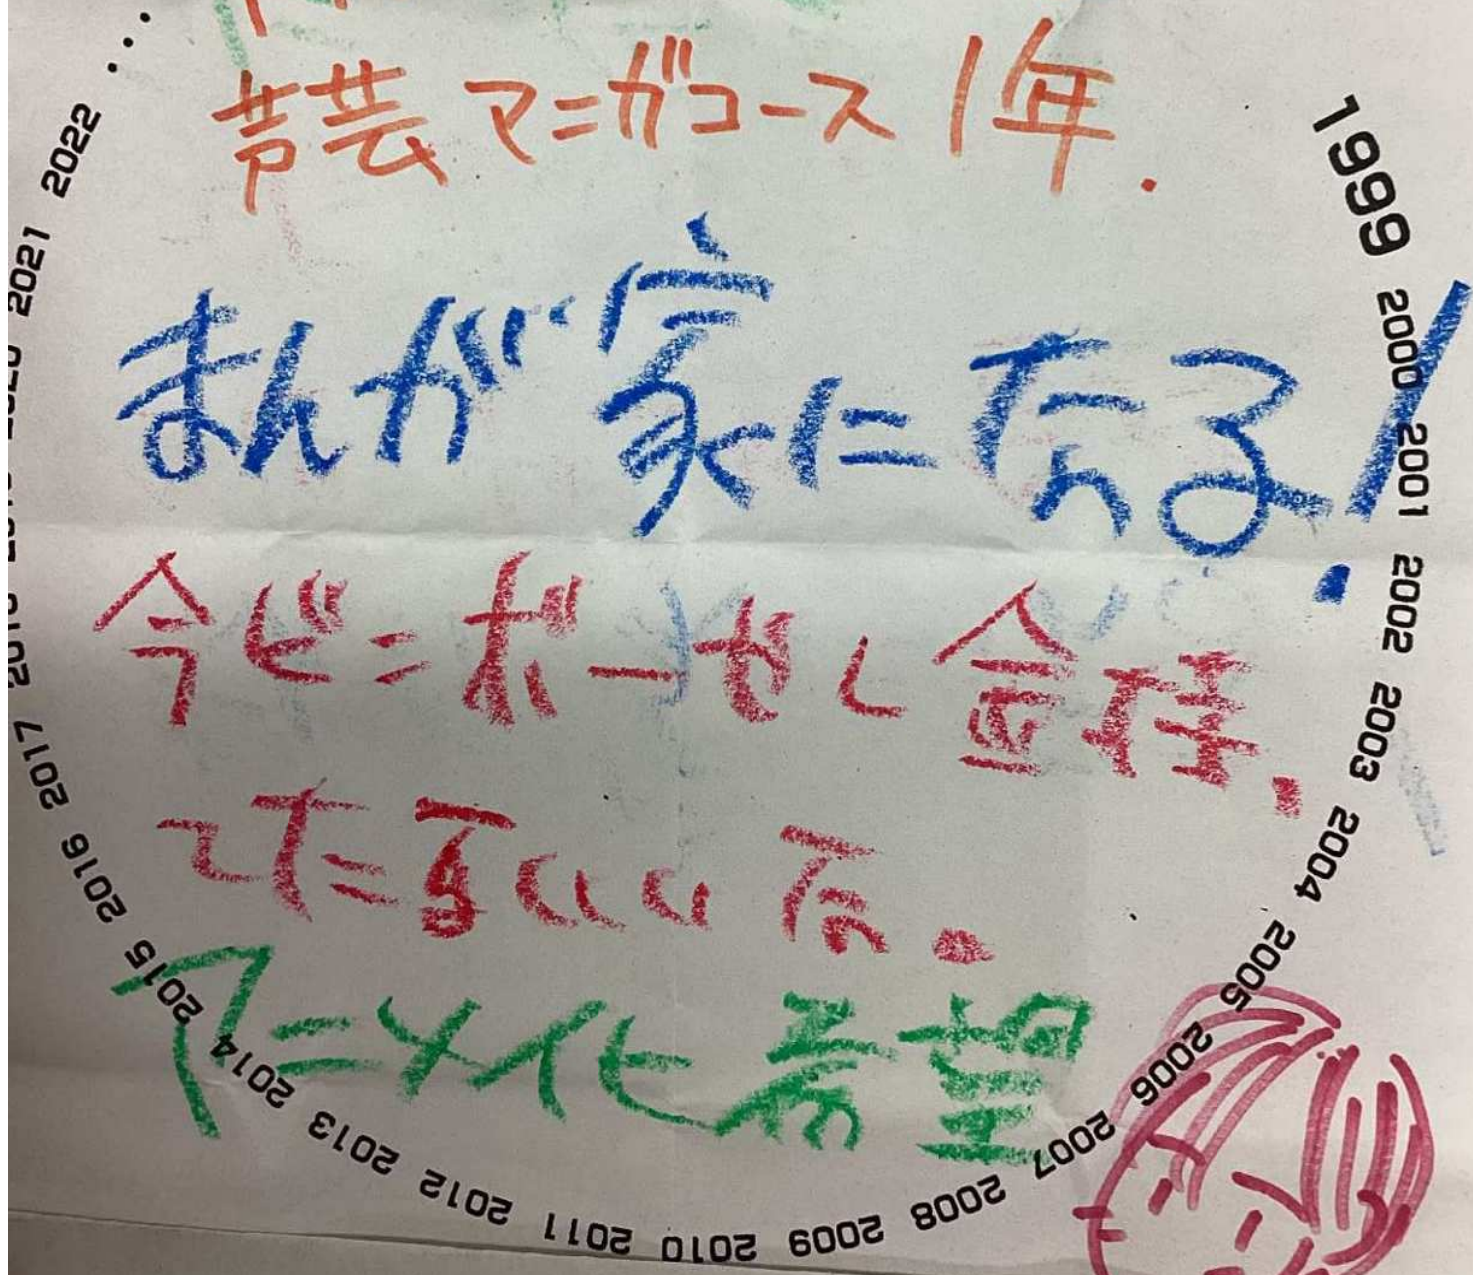 芦芸 マンガコース 1年.
まんが家になる!
今ビンボーやし金
いいな.
アニメ化希望
1999 2000 2001 2002 2003 2004 2005 2006 2007 2008 2009 2010 2011 2012 2013 2014 2015 2016 2017 2021 2022 ...